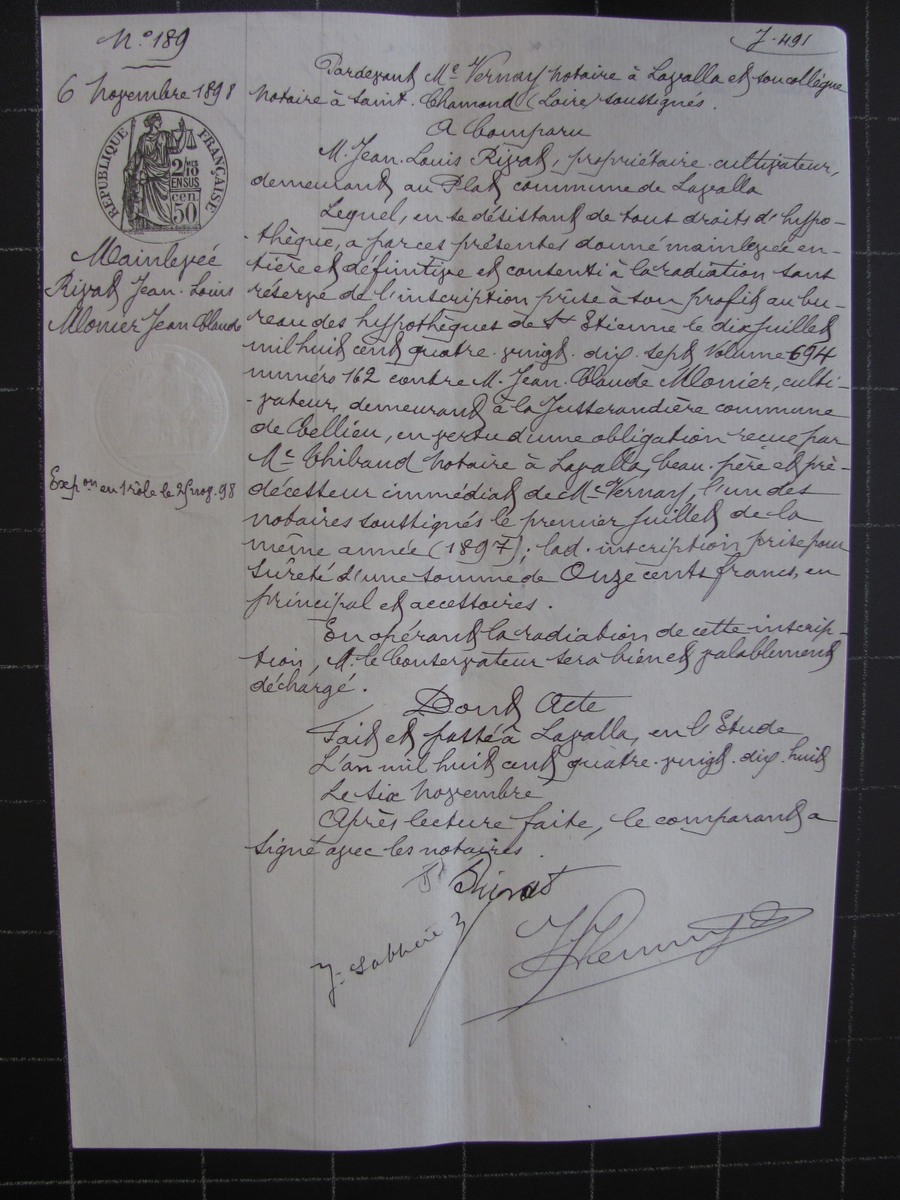 N.° 189
J. 491
6 Novembre 1898
RÉPUBLIQUE FRANÇAISE
2/10 EN SUS
50 cen
Mainlevée
Rivat Jean-Louis
Monier Jean Claude
Exp.on en 1 rôle le 25 nov. 98
Pardevant Me Vernay notaire à Lavalla et son collègue
notaire à Saint-Chamond (Loire) soussignés.
A Comparu
M. Jean-Louis Rivat, propriétaire-cultivateur,
demeurant au Plat commune de Lavalla
Lequel, en se désistant de tout droits d'hypo-
-thèque, a par ces présentes donné mainlevée en-
tière et définitive et consenti à la radiation sans
réserve de l'inscription prise à son profit au bu-
reau des hypothèques de St Etienne le dix juillet
mil huit cent quatre-vingt-dix-sept Volume 694
numéro 162 contre M. Jean-Claude Monier, culti-
-vateur, demeurant à la Jusserandière commune
de Cellieu, en vertu d'une obligation reçue par
Me Thibaud notaire à Lavalla, beau-père et pré-
décesseur immédiat de Me Vernay, l'un des
notaires soussignés le premier juillet de la
même année (1897); lad. inscription prise pour
sûreté d'une somme de Onze cents francs, en
principal et accessoires.
En opérant la radiation de cette inscrip-
tion, M. le Conservateur sera bien et valablement
déchargé.
Dont Acte
Fait et passé à Lavalla, en l'Etude
L'an mil huit cent quatre-vingt-dix-huit
Le six Novembre
Après lecture faite, le comparant a
signé avec les notaires.
Rivat
Vernay